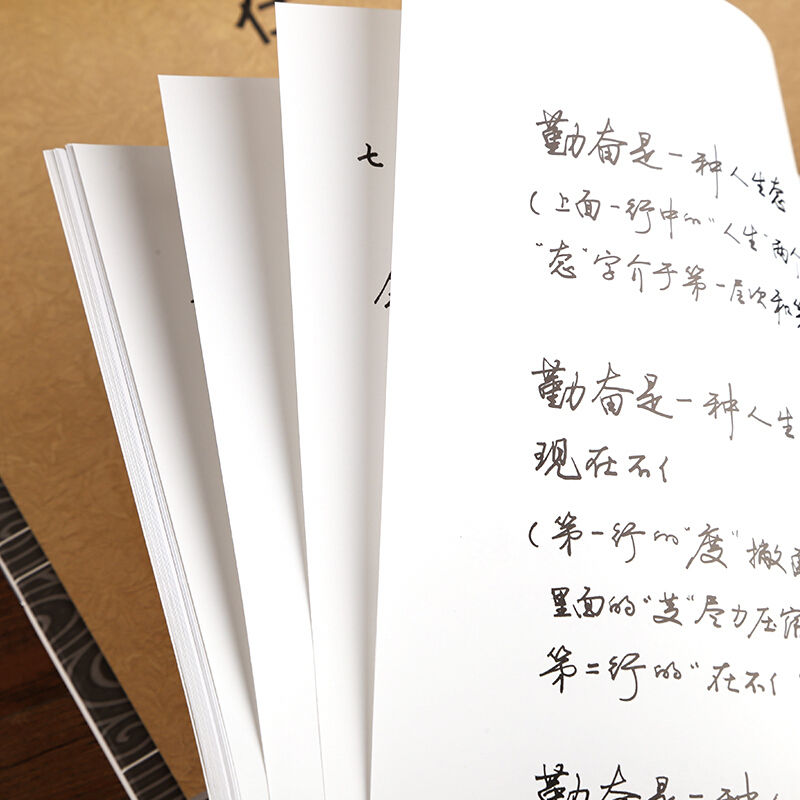 七
勤奋是一种人生态
（上面一行中的“人生”两个
“态”字介于第一层次和第
勤奋是一种人生
现在不亻
（第一行的“度”撇
里面的“芰”尽力压缩
第二行的“在不亻
勤奋是一种人